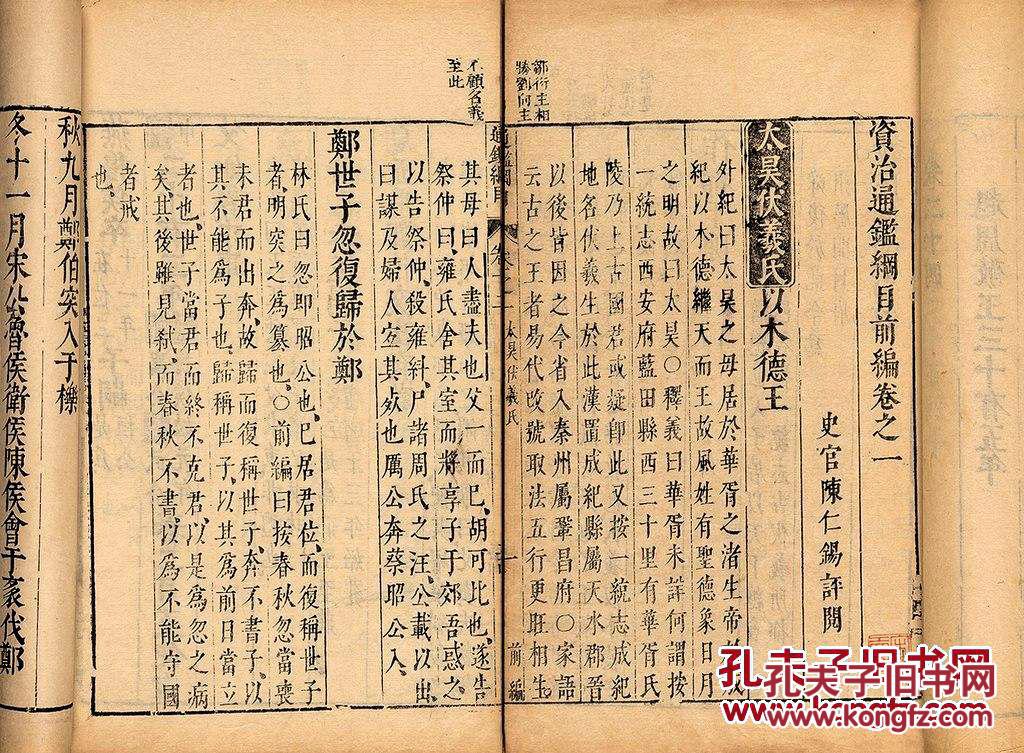 資治通鑑綱目前編卷之一
史官陳仁錫評閱
太昊伏羲氏以木德王
外紀曰太昊之母居於華胥之渚生帝於成
紀以木德繼天而王故風姓有聖德象日月
之明故曰太昊○釋義曰華胥未詳何謂按
一統志西安府藍田縣西三十里有華胥氏
陵乃上古國君或疑即此又按一統志成紀
地名伏羲生於此漢置成紀縣屬天水郡晉
以後皆因之今省入秦州屬鞏昌府○家語
云古之王者易代改號取法五行更旺相生
鄒衍主相
勝劉向主
通鑑綱目
卷之一
太昊伏羲氏
一
前編
不顧名義
至此
其母曰人盡夫也父一而已胡可比也遂告
祭仲曰雍氏舍其室而將享子于郊吾惑之
以告祭仲殺雍糾尸諸周氏之汪公載以出
曰謀及婦人宜其死也厲公奔蔡昭公入
鄭世子忽復歸於鄭
林氏曰忽即昭公也已居君位而復稱世子
者明突之為篡也○前編曰按春秋忽當喪
未君而出奔故歸而復稱世子奔不書子以
其不能為子也歸稱世子以其為前日當立
者也世子當君而終不克君以是為忽之病
矣其後雖見弒而春秋不書以為不能守國
者戒
也
秋九月鄭伯突入于櫟
冬十一月宋公魯侯衛侯陳侯會于袲伐鄭
孔夫子旧书网
www.kongfz.com